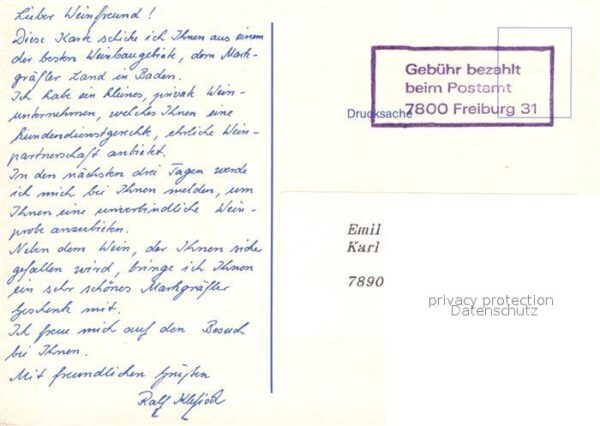 Lieber Weinfreund!
Diese Karte schicke ich Ihnen aus einem
der besten Weinbaugebiete, dem Mark-
gräfler Land in Baden.
Ich habe ein kleines, privates Wein-
unternehmen, welches Ihnen eine
kundendienstgerechte, ehrliche Wein-
partnerschaft anbietet.
In den nächsten drei Tagen werde
ich mich bei Ihnen melden, um
Ihnen eine unverbindliche Wein-
probe anzubieten.
Neben dem Wein, der Ihnen sicher
gefallen wird, bringe ich Ihnen
ein sehr schönes Markgräfler
Geschenk mit.
Ich freue mich auf den Besuch
bei Ihnen.
Mit freundlichen Grüßen
Ralf
Gebühr bezahlt
beim Postamt
7800 Freiburg 31
Drucksache
Emil
Karl
7890
privacy protection
Datenschutz